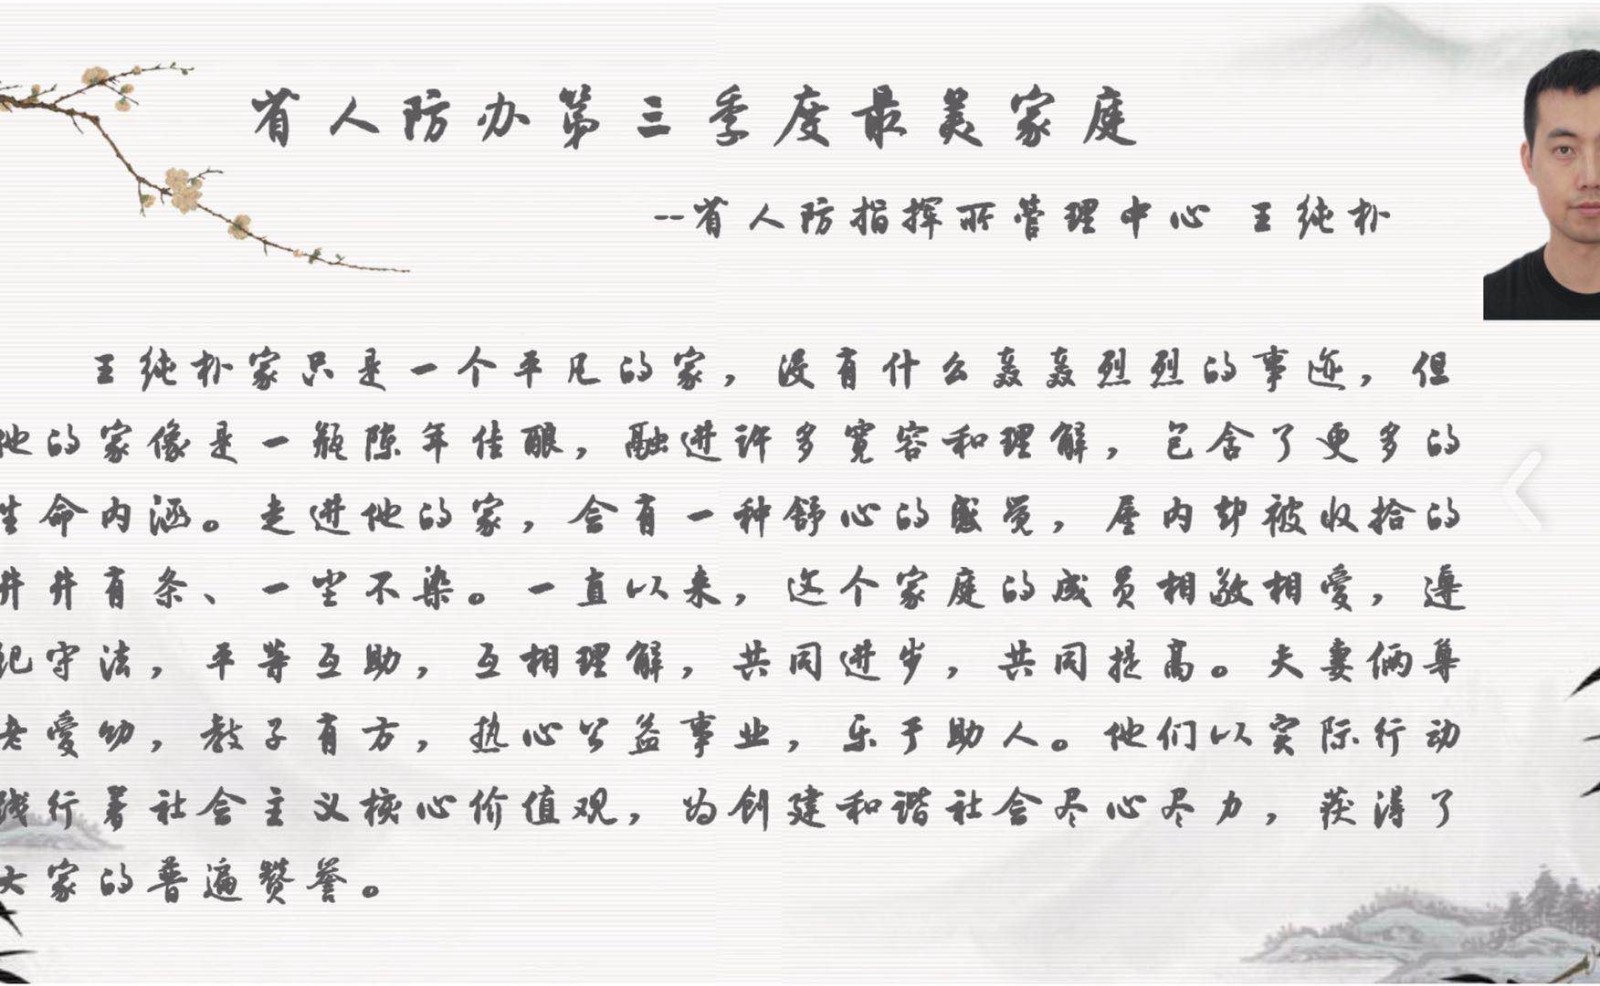 省人防办第三季度最美家庭
--省人防指挥所管理中心 王纯朴
王纯朴家只是一个平凡的家，没有什么轰轰烈烈的事迹，但
他的家像是一瓶陈年佳酿，融进许多宽容和理解，包含了更多的
生命内涵。走进他的家，会有一种舒心的感觉，屋内却被收拾的
井井有条、一尘不染。一直以来，这个家庭的成员相敬相爱，遵
纪守法，平等互助，互相理解，共同进步，共同提高。夫妻俩尊
老爱幼，教子有方，热心公益事业，乐于助人。他们以实际行动
践行着社会主义核心价值观，为创建和谐社会尽心尽力，获得了
大家的普遍赞誉。